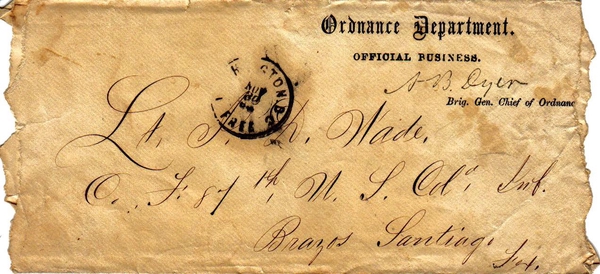 Ordnance Department.
OFFICIAL BUSINESS.
A. B. Dyer
Brig. Gen. Chief of Ordnanc
NGTON D.
FREE
Lt. J. R. Wade,
Co. F. 87th, U. S. Cold. Inf.
Brazos Santiago
Tex.